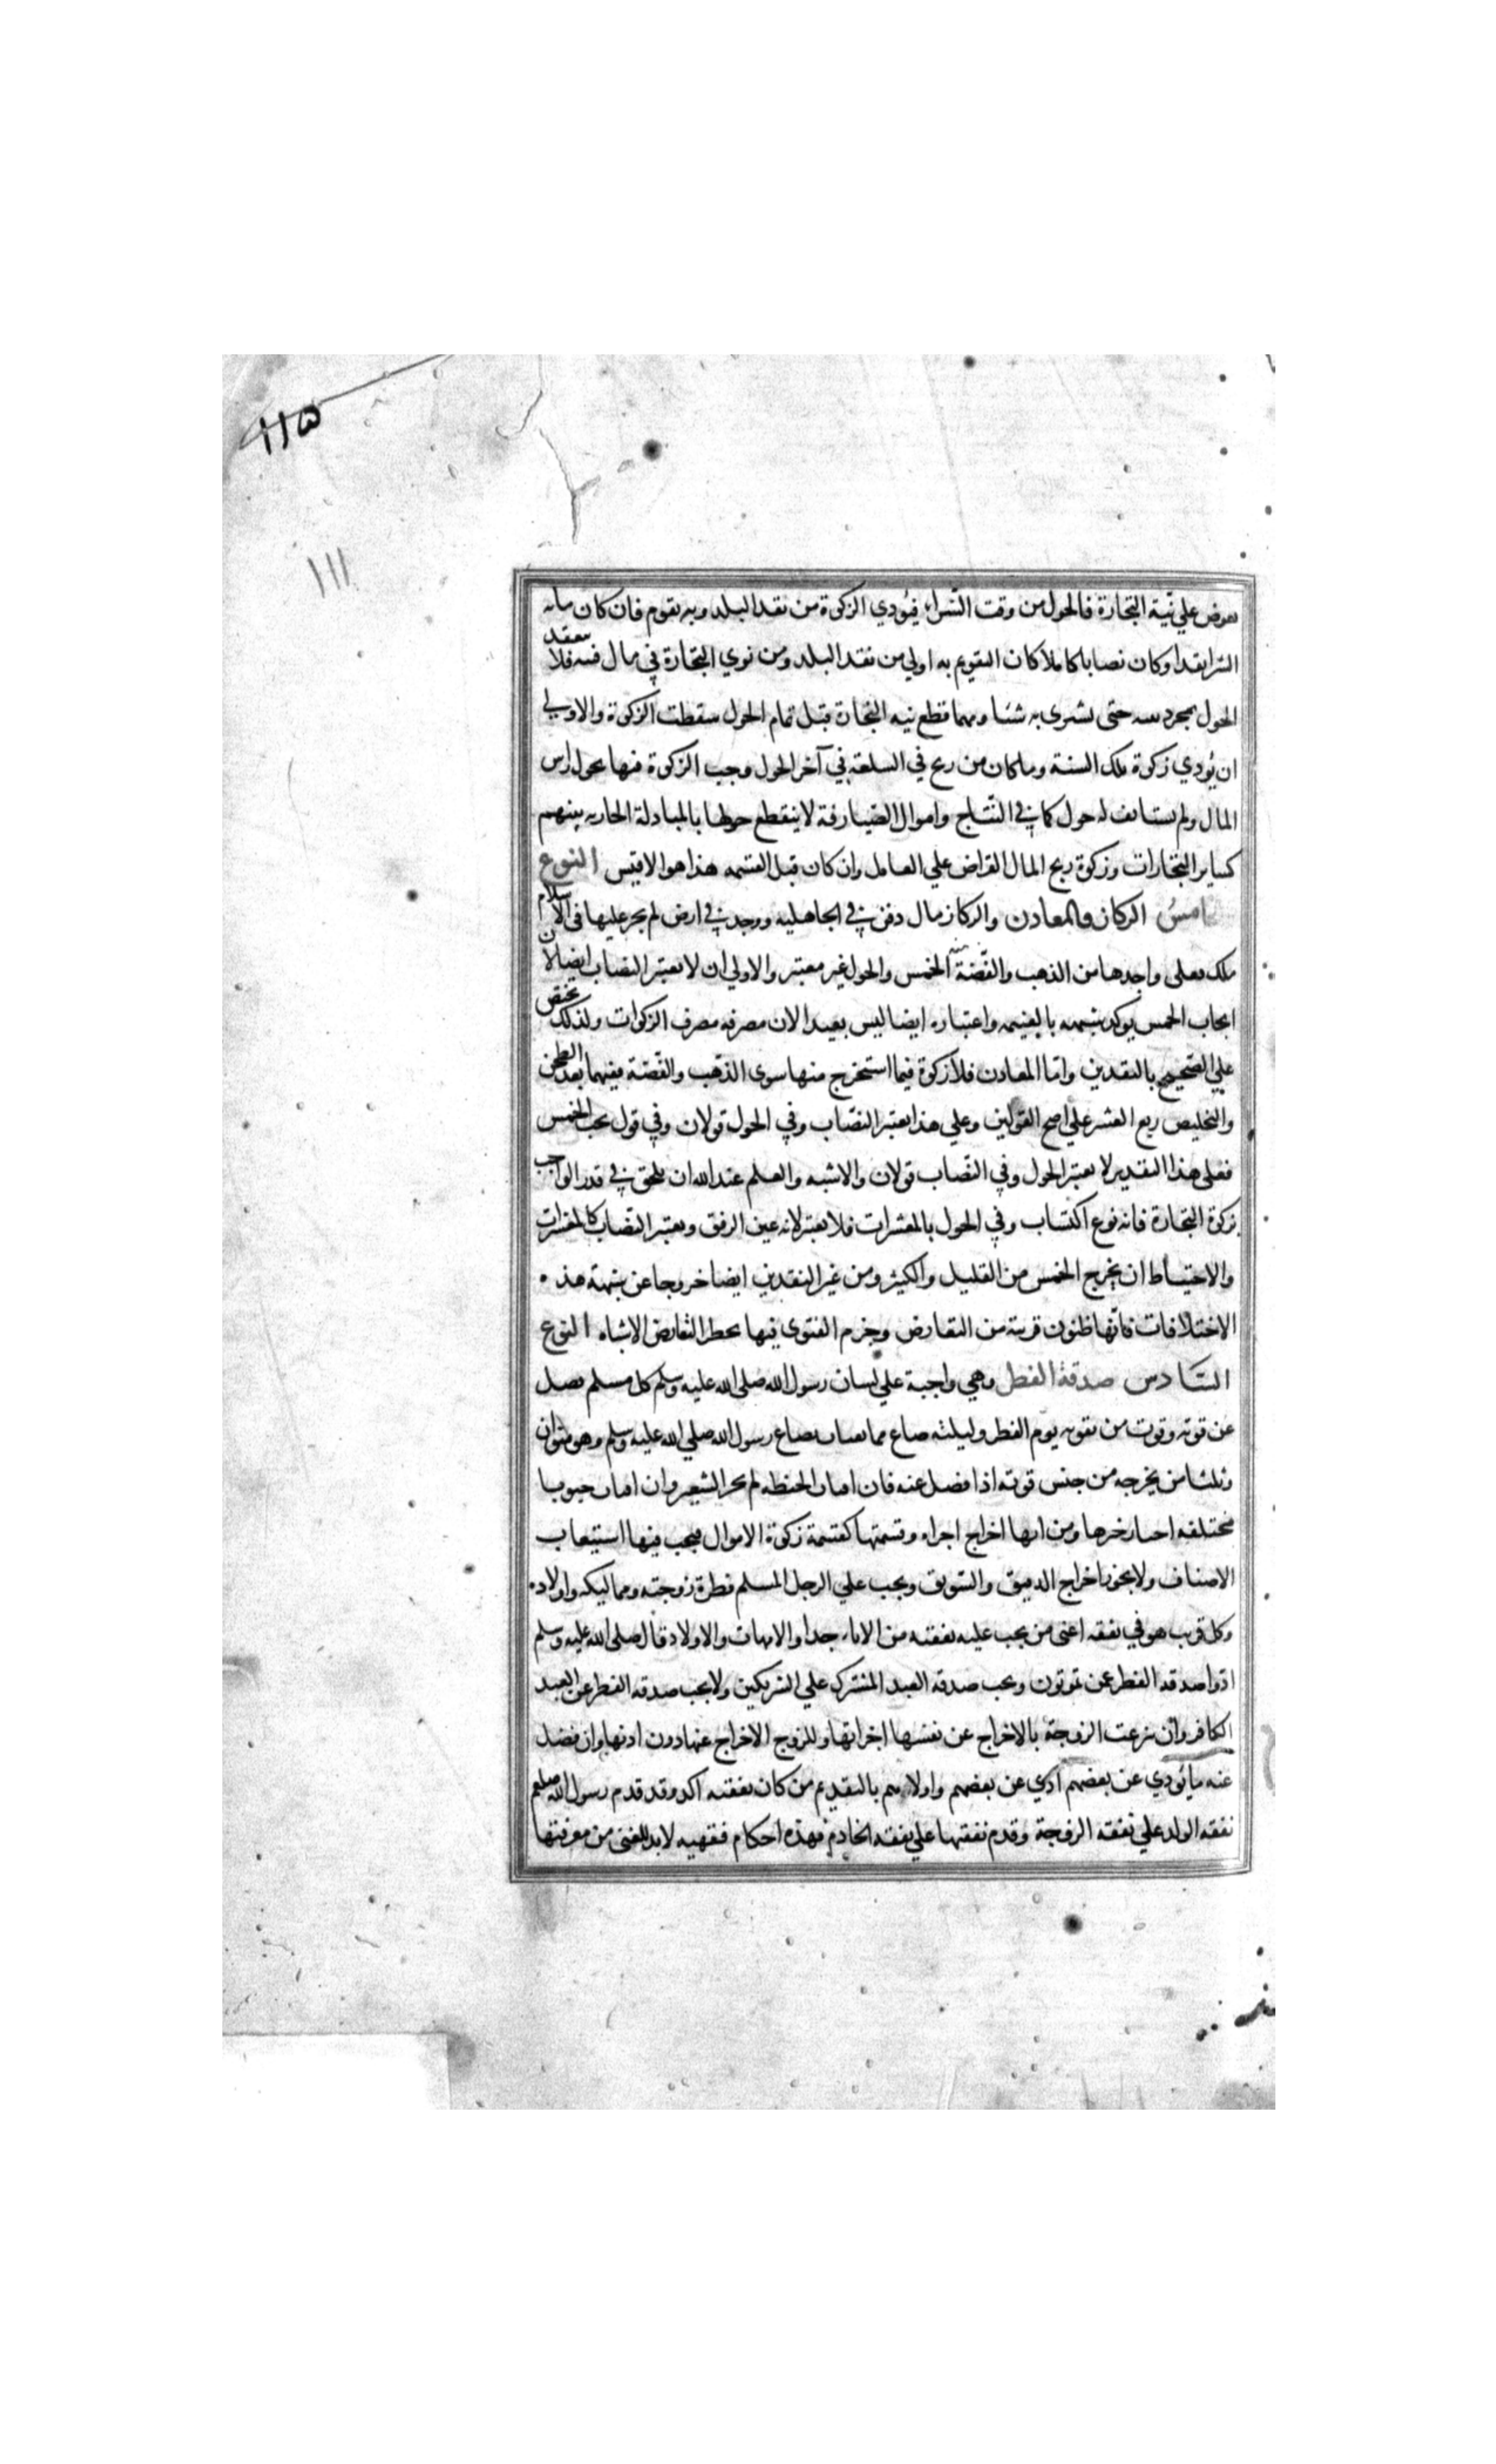 ١١٥
١١١
بعوض علي نيّة التجارة فالحول من وقت الشرا، فيُودي الزكوة من نقد البلد وبه يقوم فان كان مابه
الشرا نقدا وكان نصابا كاملا كان التقويم به اولي من نقد البلد ومن نوي التجارة في مال قنيه فلا ينعقد
الحول بمجرد نيته حتى يشتري به شئا ومهما قطع نيه التجارة قبل تمام الحول سقطت الزكوة والاولي
ان يُودي زكوة تلك السنة وما كان من ربح في السلعه في آخر الحول وجب الزكوة فيها بحول راس
المال ولم يستانف له حول كما في النتاج واموال الصيارفة لا ينقطع حولها بالمبادلة الجاريه بينهم
كساير التجارات وزكوة ربح المال القراض علي العامل وان كان قبل القسمه هذا هو الاقيس النوع
امسُ الركاز والمعادن والركاز مال دفن في الجاهليه ووجد في ارض لم يجر عليها في الاسلام
ملك فعلى واجدها من الذهب والفضّة منه الخمس والحول غير معتبر والاولي ان لا يعتبر النصاب ايضا لان
ايجاب الخمس يوكد شبهه بالغنيمه واعتباره ايضا ليس ببعيد الان مصرفه مصرف الزكوات ولذلك يختص
علي الصحيح بالنقدين واما المعادن فلا زكوة فيما استخرج منها سوى الذهب والفضّة ففيهما بعد الطحن
والتخليص ربع العشر علي اصح القولين وعلي هذا يعتبر النصّاب وفي الحول قولان وفي قول يجب الخمس
فعلي هذا التقدير لا يعتبر الحول وفي النصّاب قولان والاشبه والعلم عند الله ان يلحق في قدر الواجب
بزكوة التجارة فانه نوع اكتساب وفي الحول بالمعشرات فلا يعتبر لانه عين الرفق ويعتبر النصاب كالمعشرات
والاحتياط ان يخرج الخمس من القليل والكثير ومن غير النقدين ايضا خروجا عن شبهة هذه
الاختلافات فانها ظنون قريبة من التعارض وجزم الفتوى فيها بخطر لتعارض الاشباه النوع
السّادس صدقة الفطر وهي واجبة علي لسان رسول الله صلى الله عليه وسلم كل مسلم فضل
عن قوته وقوت من يقوته يوم الفطر وليلته صاع مما يقتات بصاع رسول الله صلي الله عليه وسلم وهو منوان
وثلثا من يخرجه من جنس قوته اذا فضل عنه فان اقتات الحنطه لم يجز الشعير وان اقتات حبوبا
مختلفه اختار خيرها ومن ايها اخراج اجزاه وقسمتها كقسمة زكوة الاموال فيجب فيها استيعاب
الاصناف ولا يجوز اخراج الدقيق والسّويق ويجب علي الرجل المسلم فطرة زوجته ومماليكه واولاده
وكل قريب هو في نفقه اعنى من يجب عليه نفقته من الاباء جدا والامهات والاولاد قال صلى الله عليه وسلم
ادّوا صدقة الفطر عمن تمونون ويجب صدقة العبد المشترك علي الشريكين ولا يجب صدقه الفطر عن العبد
الكافر وان تبرعت الزوجة بالاخراج عن نفسها اجزاتها وللزوج الاخراج عنها دون اذنها وان فضل
عنه ما يُودي عن بعضهم ادي عن بعضهم واولاهم بالتقديم من كان نفقته اكد وقد قدم رسول الله صلعم
نفقه الولد علي نفقه الزوجة وقدم نفقتها علي نفقه الخادم فهذه احكام فقهيه لابد للغنى من معرفتها